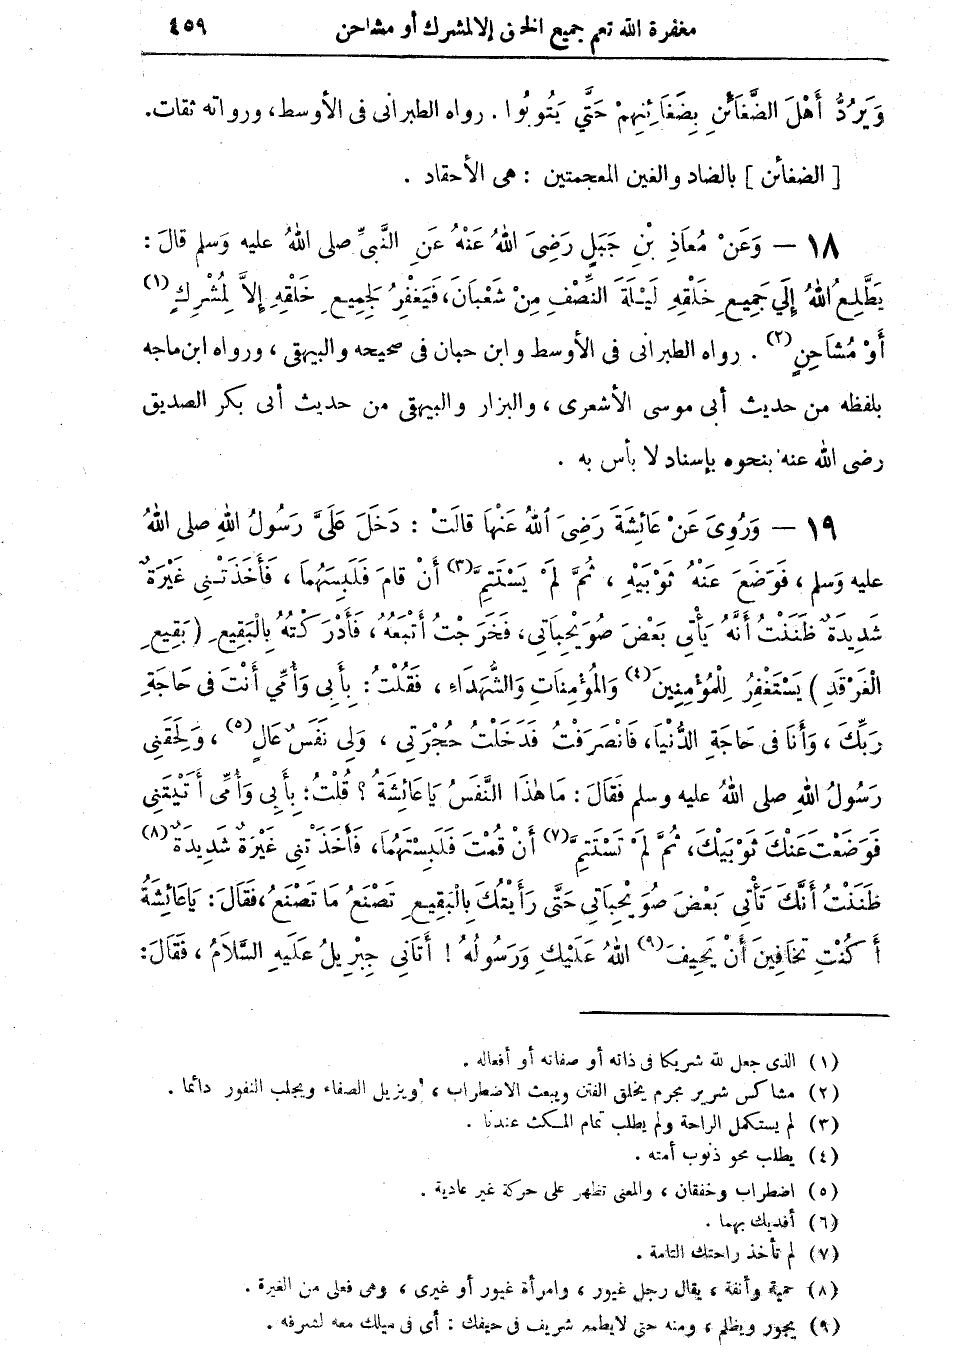 مغفرة الله تعم جميع الخلق إلا لمشرك أو مشاحن ٤٥٩
وَيَرُدُّ أَهْلَ الضَّغَائِنِ بِضَغَائِنِهِمْ حَتَّى يَتُوبُوا . رواه الطبرانى فى الأوسط، ورواته ثقات.
[ الضغائن ] بالضاد والغين المعجمتين : هى الأحقاد .
١٨ — وَعَنْ مُعَاذِ بْنِ جَبَلٍ رَضِىَ اللهُ عَنْهُ عَنِ النَّبِىِّ صلى اللهُ عليه وَسلم قالَ :
يَطَّلِعُ اللهُ إِلَى جَمِيعِ خَلْقِهِ لَيْلَةَ النِّصْفِ مِنْ شَعْبَانَ، فَيَغْفِرُ لِجَمِيعِ خَلْقِهِ إِلاَّ لِمُشْرِكٍ (١)
أَوْ مُشَاحِنٍ (٢) . رواه الطبرانى فى الأوسط وابن حبان فى صحيحه والبيهقى ، ورواه ابن ماجه
بلفظه من حديث أبى موسى الأشعرى ، والبزار والبيهقى من حديث أبى بكر الصديق
رضى الله عنه بنحوه بإسناد لا بأس به .
١٩ — وَرُوِىَ عَنْ عَائِشَةَ رَضِىَ اللهُ عَنْهَا قالَتْ : دَخَلَ عَلَىَّ رَسُولُ اللهِ صلى اللهُ
عليه وَسلم ، فَوَضَعَ عَنْهُ ثَوْبَيْهِ ، ثُمَّ لَمْ يَسْتَتِمَّ (٣) أَنْ قامَ فَلَبِسَهُمَا ، فَأَخَذَتْنِى غَيْرَةٌ
شَدِيدَةٌ ظَنَنْتُ أَنَّهُ يَأْتِى بَعْضَ صُوَيْحِبَاتِى، فَخَرَجْتُ أَتْبَعُهُ، فَأَدْرَكْتُهُ بِالْبَقِيعِ ( بَقِيعِ
الْغَرْقَدِ ) يَسْتَغْفِرُ لِلْمُؤْمِنِينَ (٤) وَالْمُؤْمِنَاتِ وَالشُّهَدَاءِ ، فَقُلْتُ : بِأَبِى وَأُمِّى أَنْتَ فى حَاجَةِ
رَبِّكَ ، وَأَنَا فى حَاجَةِ الدُّنْيَا، فَانْصَرَفْتُ فَدَخَلْتُ حُجْرَتِى ، وَلِى نَفَسٌ عَالٍ (٥) ، وَلَحِقَنِى
رَسُولُ اللهِ صلى اللهُ عليه وسلم فَقَالَ : مَا هٰذَا النَّفَسُ يَا عَائِشَةُ ؟ قُلْتُ : بِأَبِى وَأُمِّى أَتَيْتَنِى
فَوَضَعْتَ عَنْكَ ثَوْبَيْكَ، ثُمَّ لَمْ تَسْتَتِمَّ (٧) أَنْ قُمْتَ فَلَبِسْتَهُمَا، فَأَخَذَتْنِى غَيْرَةٌ شَدِيدَةٌ (٨)
ظَنَنْتُ أَنَّكَ تَأْتِى بَعْضَ صُوَيْحِبَاتِى حَتَّى رَأَيْتُكَ بِالْبَقِيعِ تَصْنَعُ مَا تَصْنَعُ، فَقَالَ : يَا عَائِشَةُ
أَكُنْتِ تَخَافِينَ أَنْ يَحِيفَ (٩) اللهُ عَلَيْكِ وَرَسُولُهُ ! أَتَانِى جِبْرِيلُ عَلَيهِ السَّلاَمُ ، فَقَالَ :
(١) الذى جعل لله شريكا فى ذاته أو صفاته أو أفعاله .
(٢) مشاكس شرير مجرم يخلق الفتن ويبعث الاضطراب ، ويزيل الصفاء ويجلب النفور دائما .
(٣) لم يستكمل الراحة ولم يطلب تمام المكث عندنا .
(٤) يطلب محو ذنوب أمته .
(٥) اضطراب وخفقان ، والمعنى تظهر على حركة غير عادية .
(٦) أفديك بهما .
(٧) لم تأخذ راحتك التامة .
(٨) حمية وأنفة ، يقال رجل غيور ، وامرأة غيور أو غيرى ، وهى فعلى من الغيرة .
(٩) يجور ويظلم ، ومنه حتى لا يطمع شريف فى حيفك : أى فى ميلك معه لشرفه .